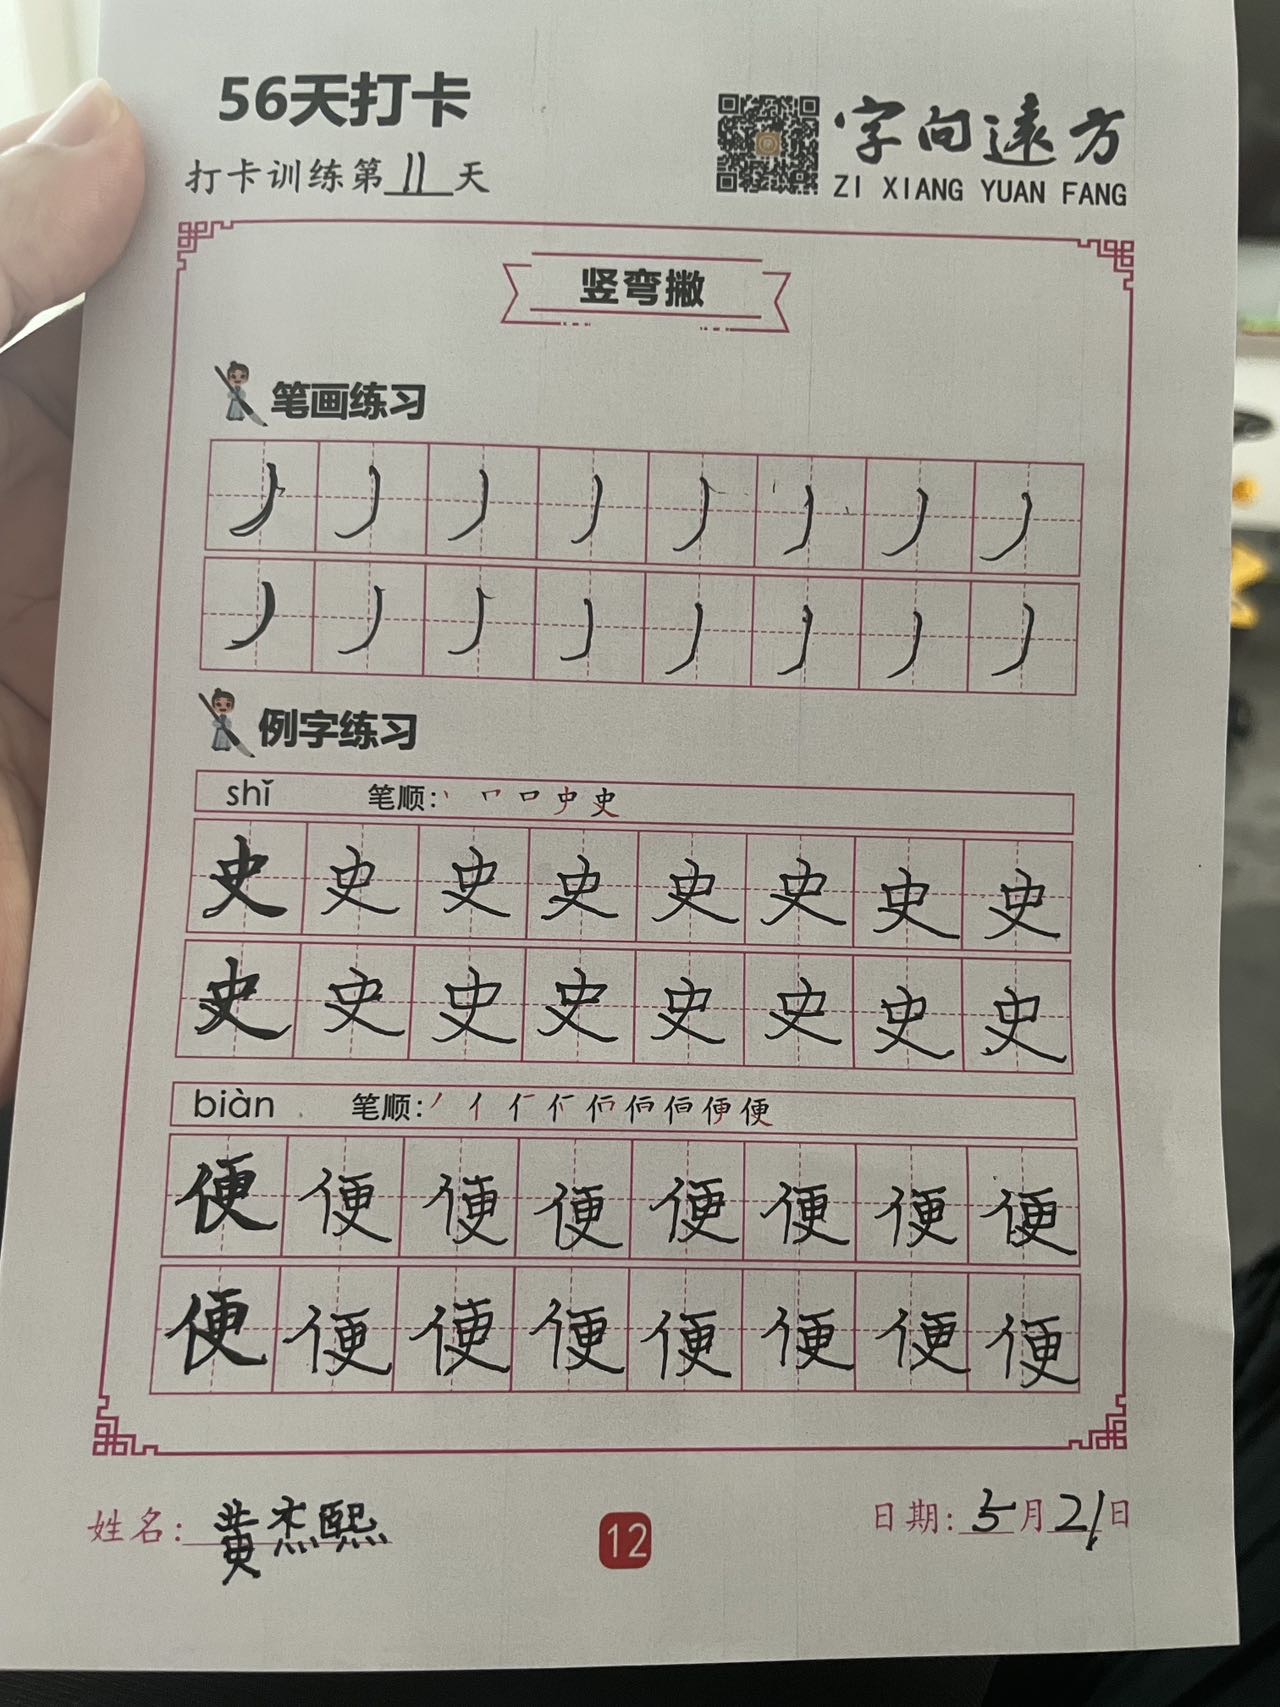 56天打卡
打卡训练第11天
字向遠方
ZI XIANG YUAN FANG
竖弯撇
笔画练习
丿 丿 丿 丿 丿 丿 丿 丿
丿 丿 丿 丿 丿 丿 丿 丿
例字练习
shǐ 笔顺: 丶 𠃍 口 史 史
史 史 史 史 史 史 史 史
史 史 史 史 史 史 史 史
biàn 笔顺:
便 便 便 便 便 便 便 便
便 便 便 便 便 便 便 便
姓名: 黄杰熙
12
日期: 5月21日